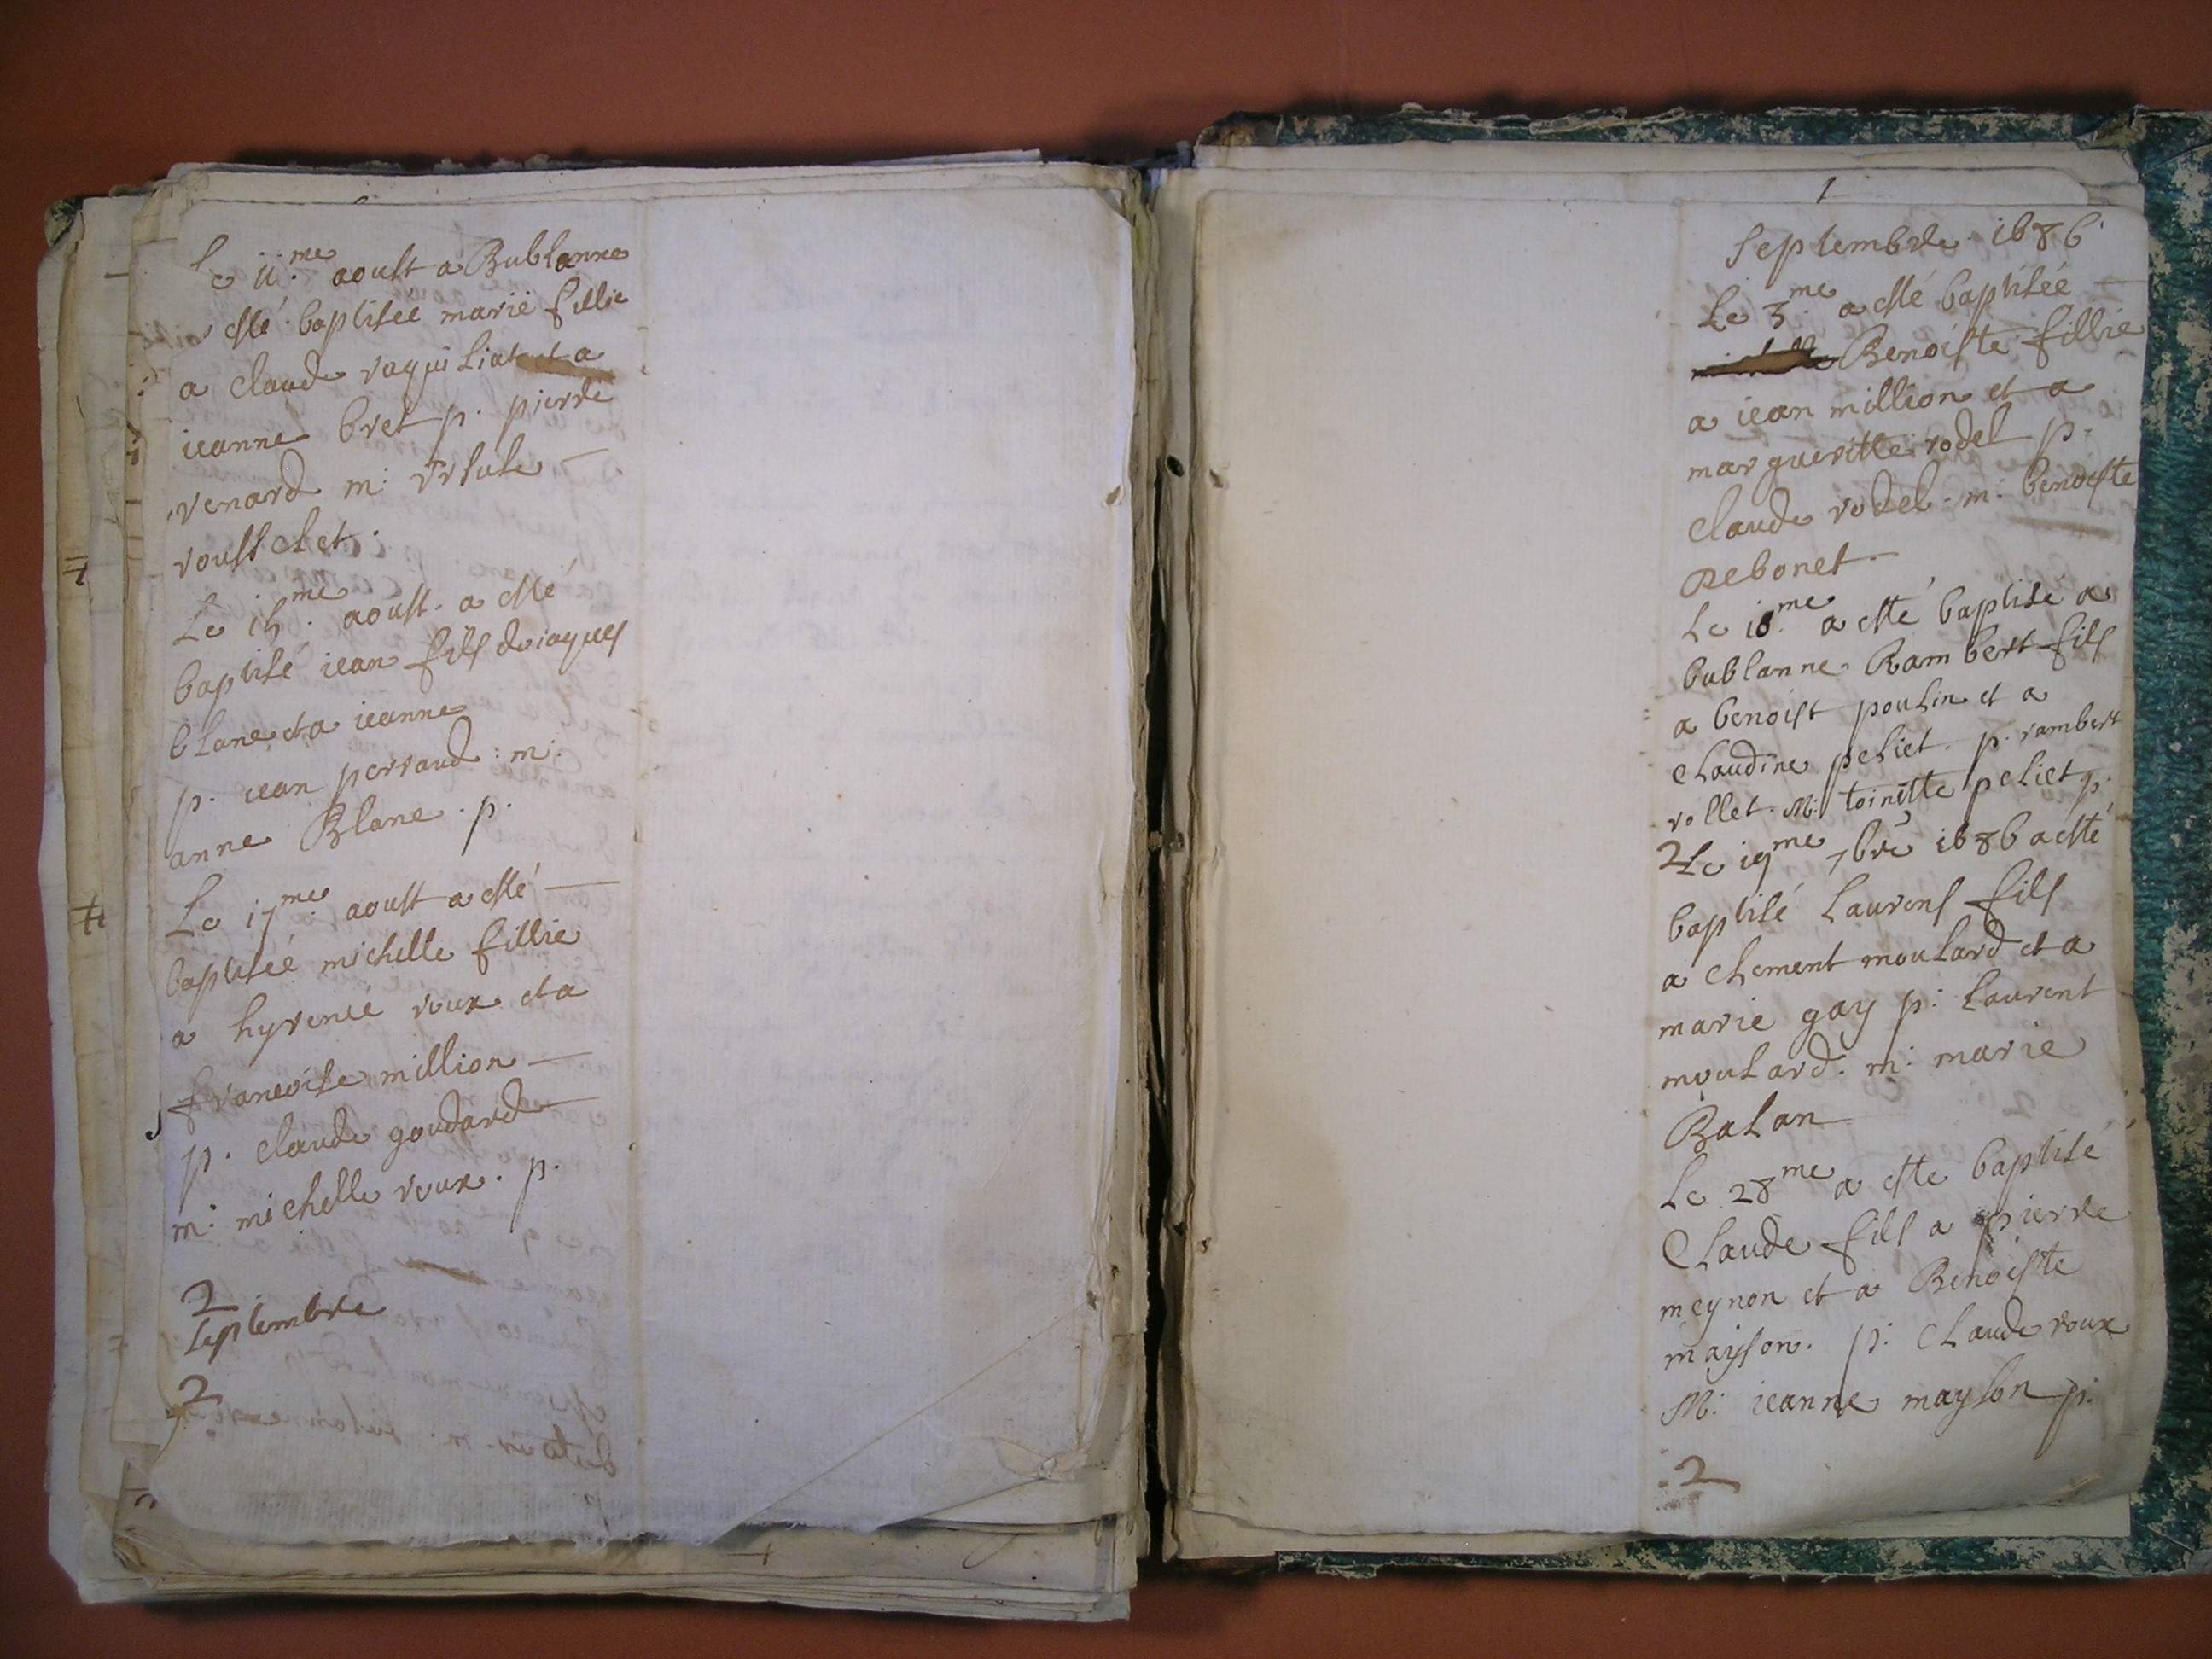 Le 11.me aoust a Bublanne
a esté baptiseé marie fillie
a claude vaguiliat et a
ieanne bret p. pierre
venard m: Ursule
rousselet.
Le 15.me aoust. a esté
baptisé iean fils de iaques
blanc et a ieanne
p. iean perraud. m:
anne Blanc. p.
Le 17.me aoust a esté
baptiseé michelle fillie
a hyreneé roux et a
francoise million
p. claude goudard
m: michelle roux. p.
2
septembre
2
1
septembre 1686
Le 3.me a esté baptiseé
Benoiste fillie
a iean million et a
margueritte rodel p.
claude rodel. m: benoiste
Debonet.
Le 18.me a esté baptisé a
bublanne Rambert fils
a benoist poulin et a
claudine peliet. p. rambert
rollet. M: toinette peliet p.
2 Le 19me 7bre 1686 a esté
baptisé Laurens fils
a clement moulard et a
marie gay p: Laurent
moulard. m: marie
Balan
Le 28me a este baptisé
Claude fils a pierre
meynon et a Benoiste
mayson. p: Claude roux
M: ieanne mayson p.
2